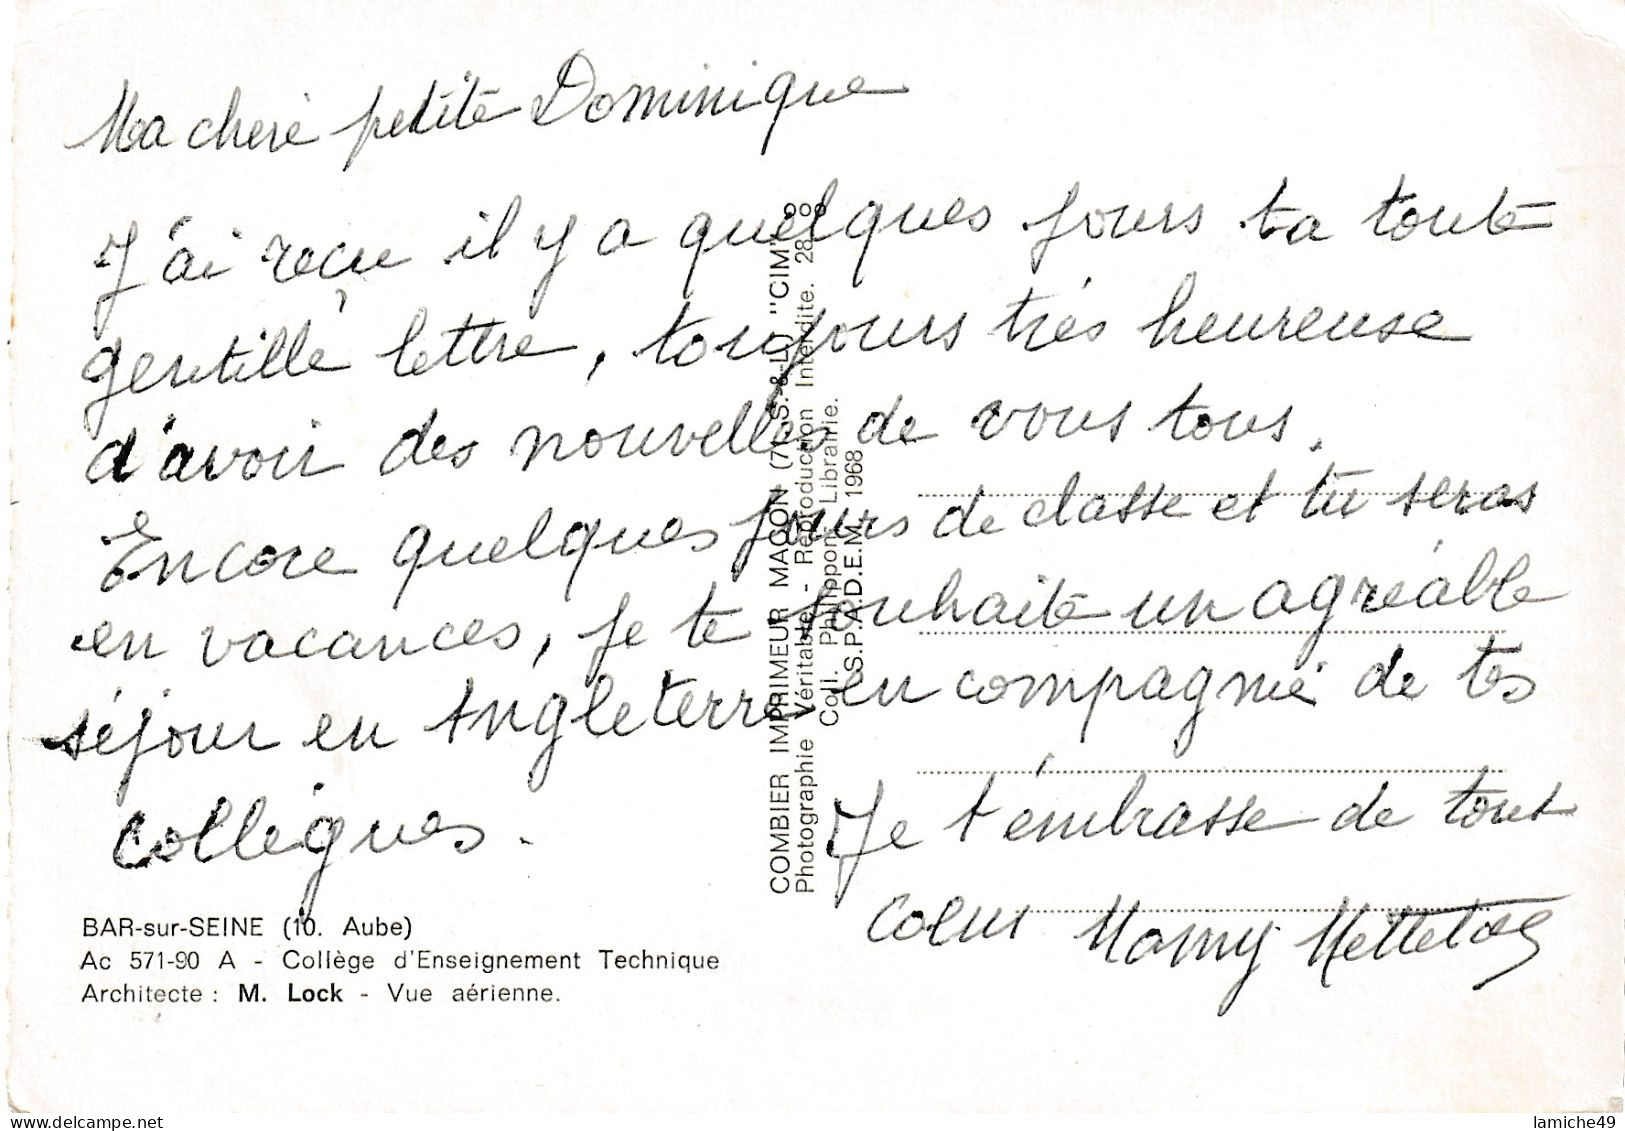 Ma chère petite Dominique
J'ai reçu il y a quelques jours ta toute
gentille lettre, toujours très heureuse
d'avoir des nouvelles de vous tous.
Encore quelques jours de classe et tu seras
en vacances, je te souhaite un agréable
séjour en Angleterre en compagnie de tes
collègues.
Je t'embrasse de tout
coeur Mamy
BAR-sur-SEINE (10. Aube)
Ac 571-90 A - Collège d'Enseignement Technique
Architecte : M. Lock - Vue aérienne.
COMBIER IMPRIMEUR MACON (71 S.-&-L.) "CIM"
Photographie Véritable - Reproduction Interdite.
Coll. Philippon, Librairie.
S.P.A.D.E.M. 1968
delcampe.net
lamiche49